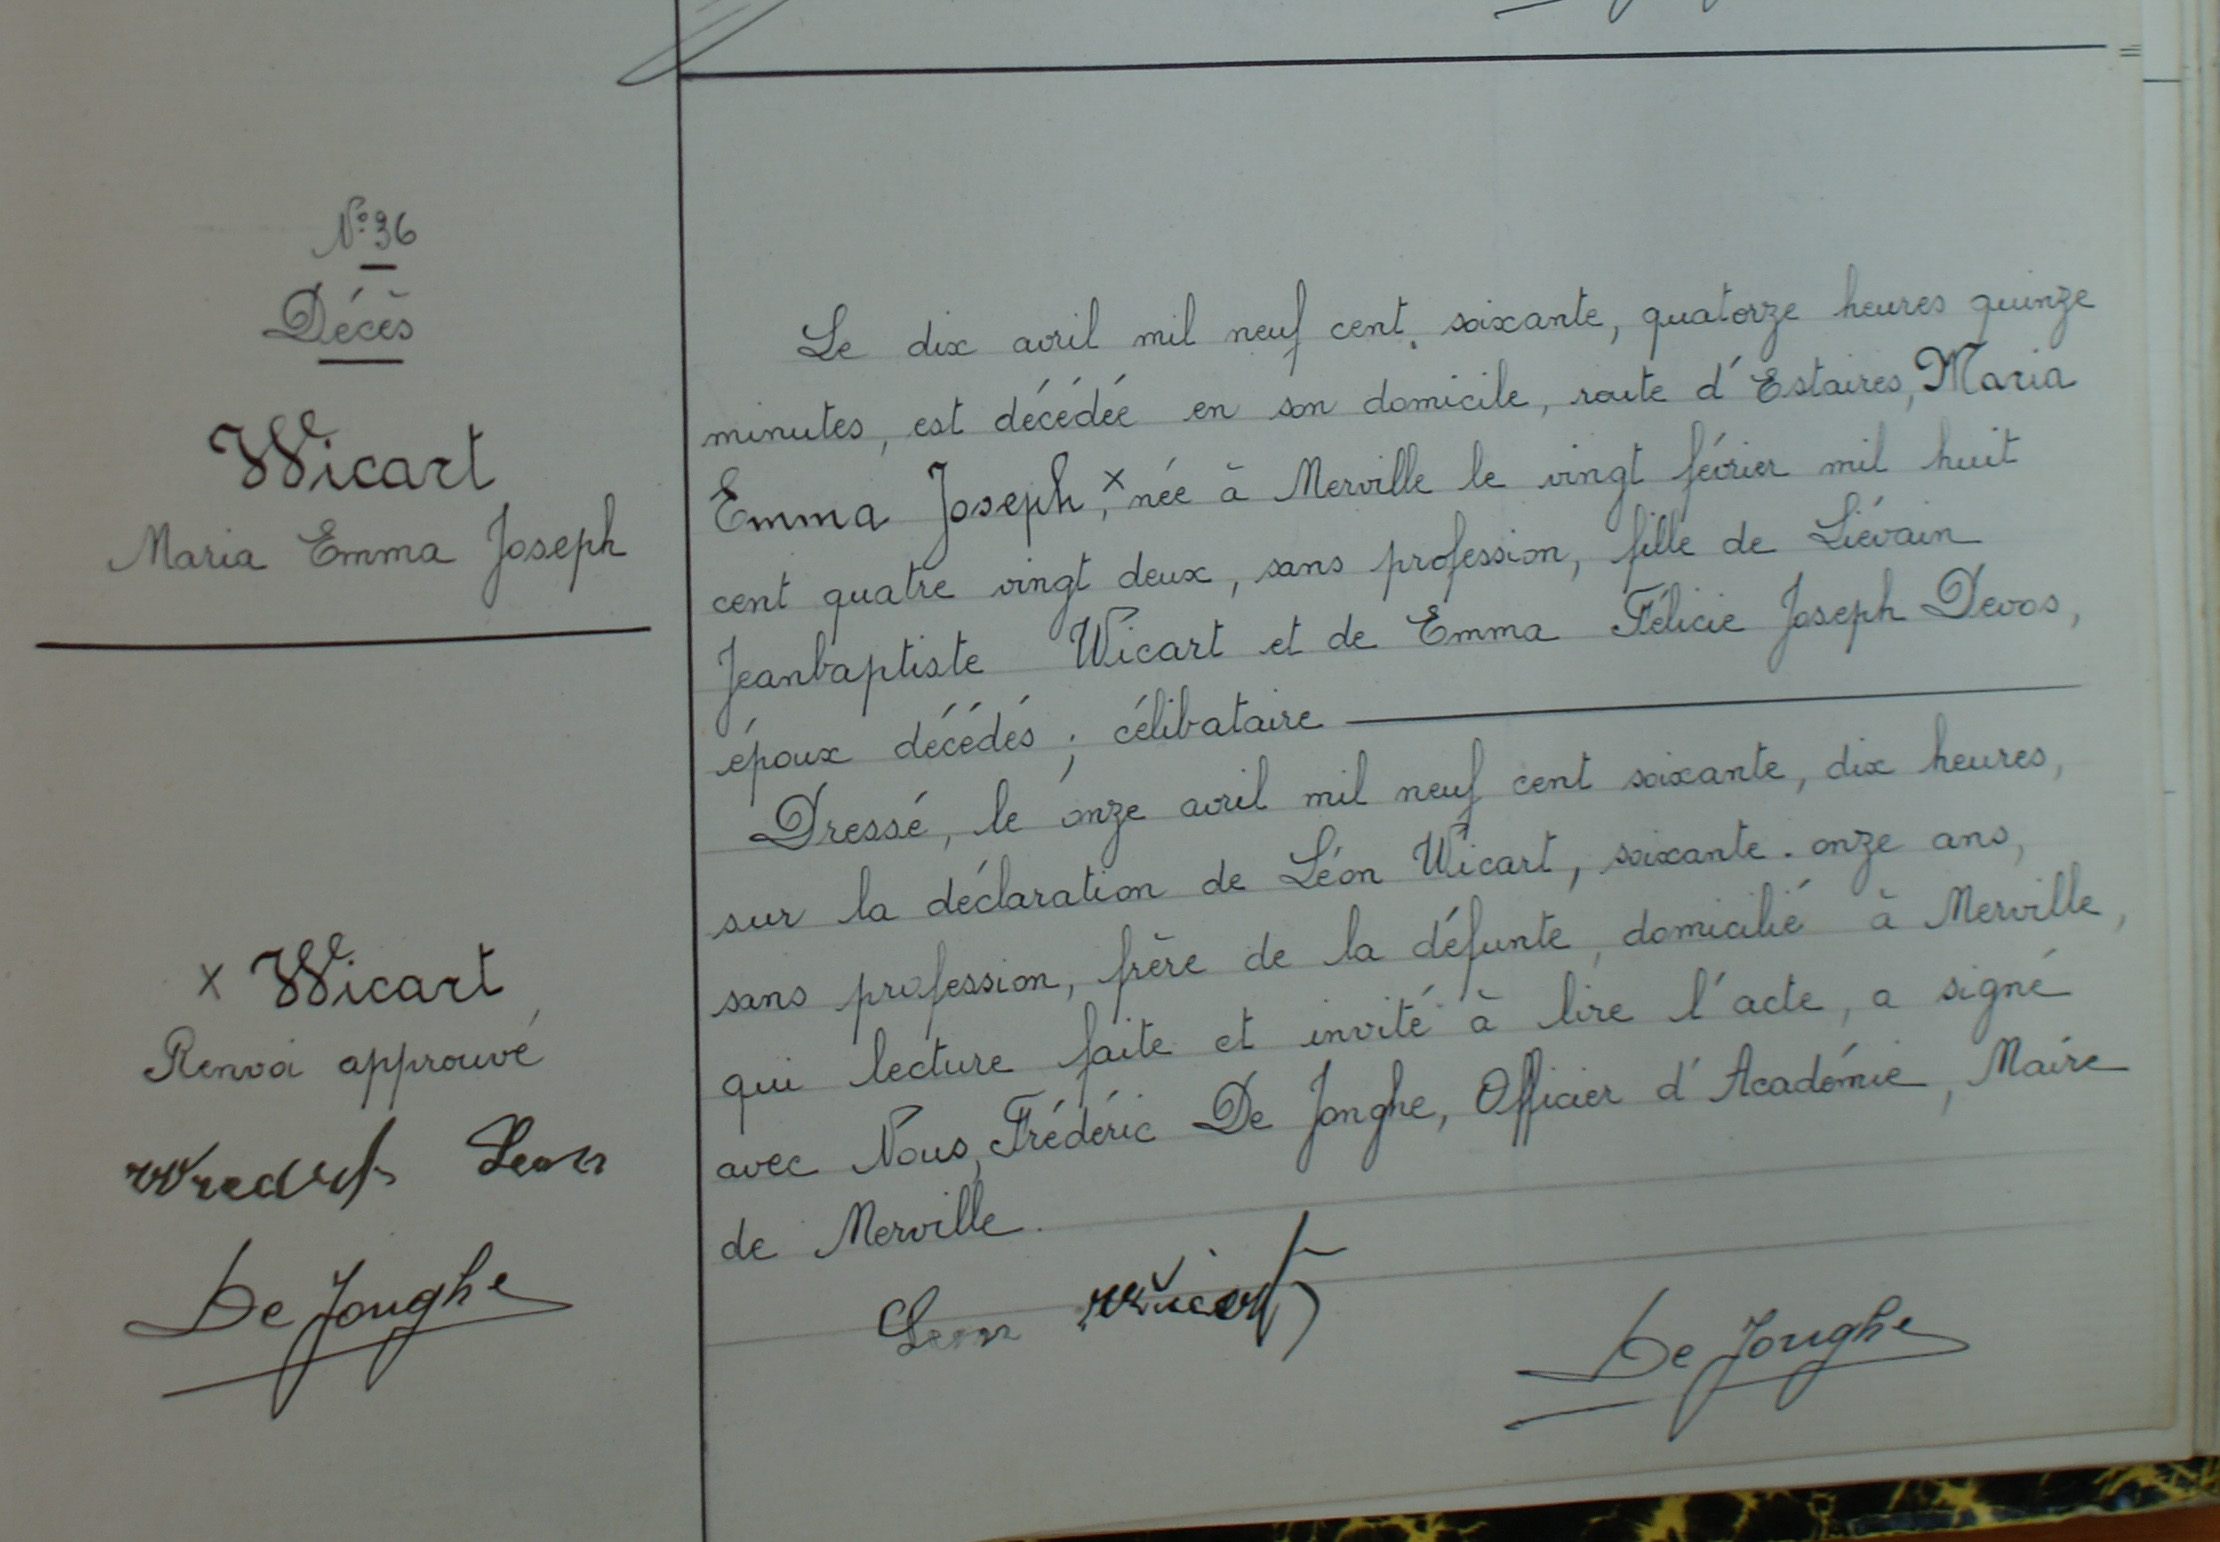 N° 36
Décès
Wicart
Maria Emma Joseph
x Wicart
Renvoi approuvé
Wicart Leon
De Jonghe
Le dix avril mil neuf cent soixante, quatorze heures quinze
minutes, est décédée en son domicile, route d'Estaires, Maria
Emma Joseph, x née à Merville le vingt février mil huit
cent quatre vingt deux, sans profession, fille de Liévain
Jeanbaptiste Wicart et de Emma Félicie Joseph Devos,
époux décédés ; célibataire
Dressé, le onze avril mil neuf cent soixante, dix heures,
sur la déclaration de Léon Wicart, soixante-onze ans,
sans profession, frère de la défunte, domicilié à Merville,
qui lecture faite et invité à lire l'acte, a signé
avec Nous, Frédéric De Jonghe, Officier d'Académie, Maire
de Merville.
Leon Wicart
De Jonghe